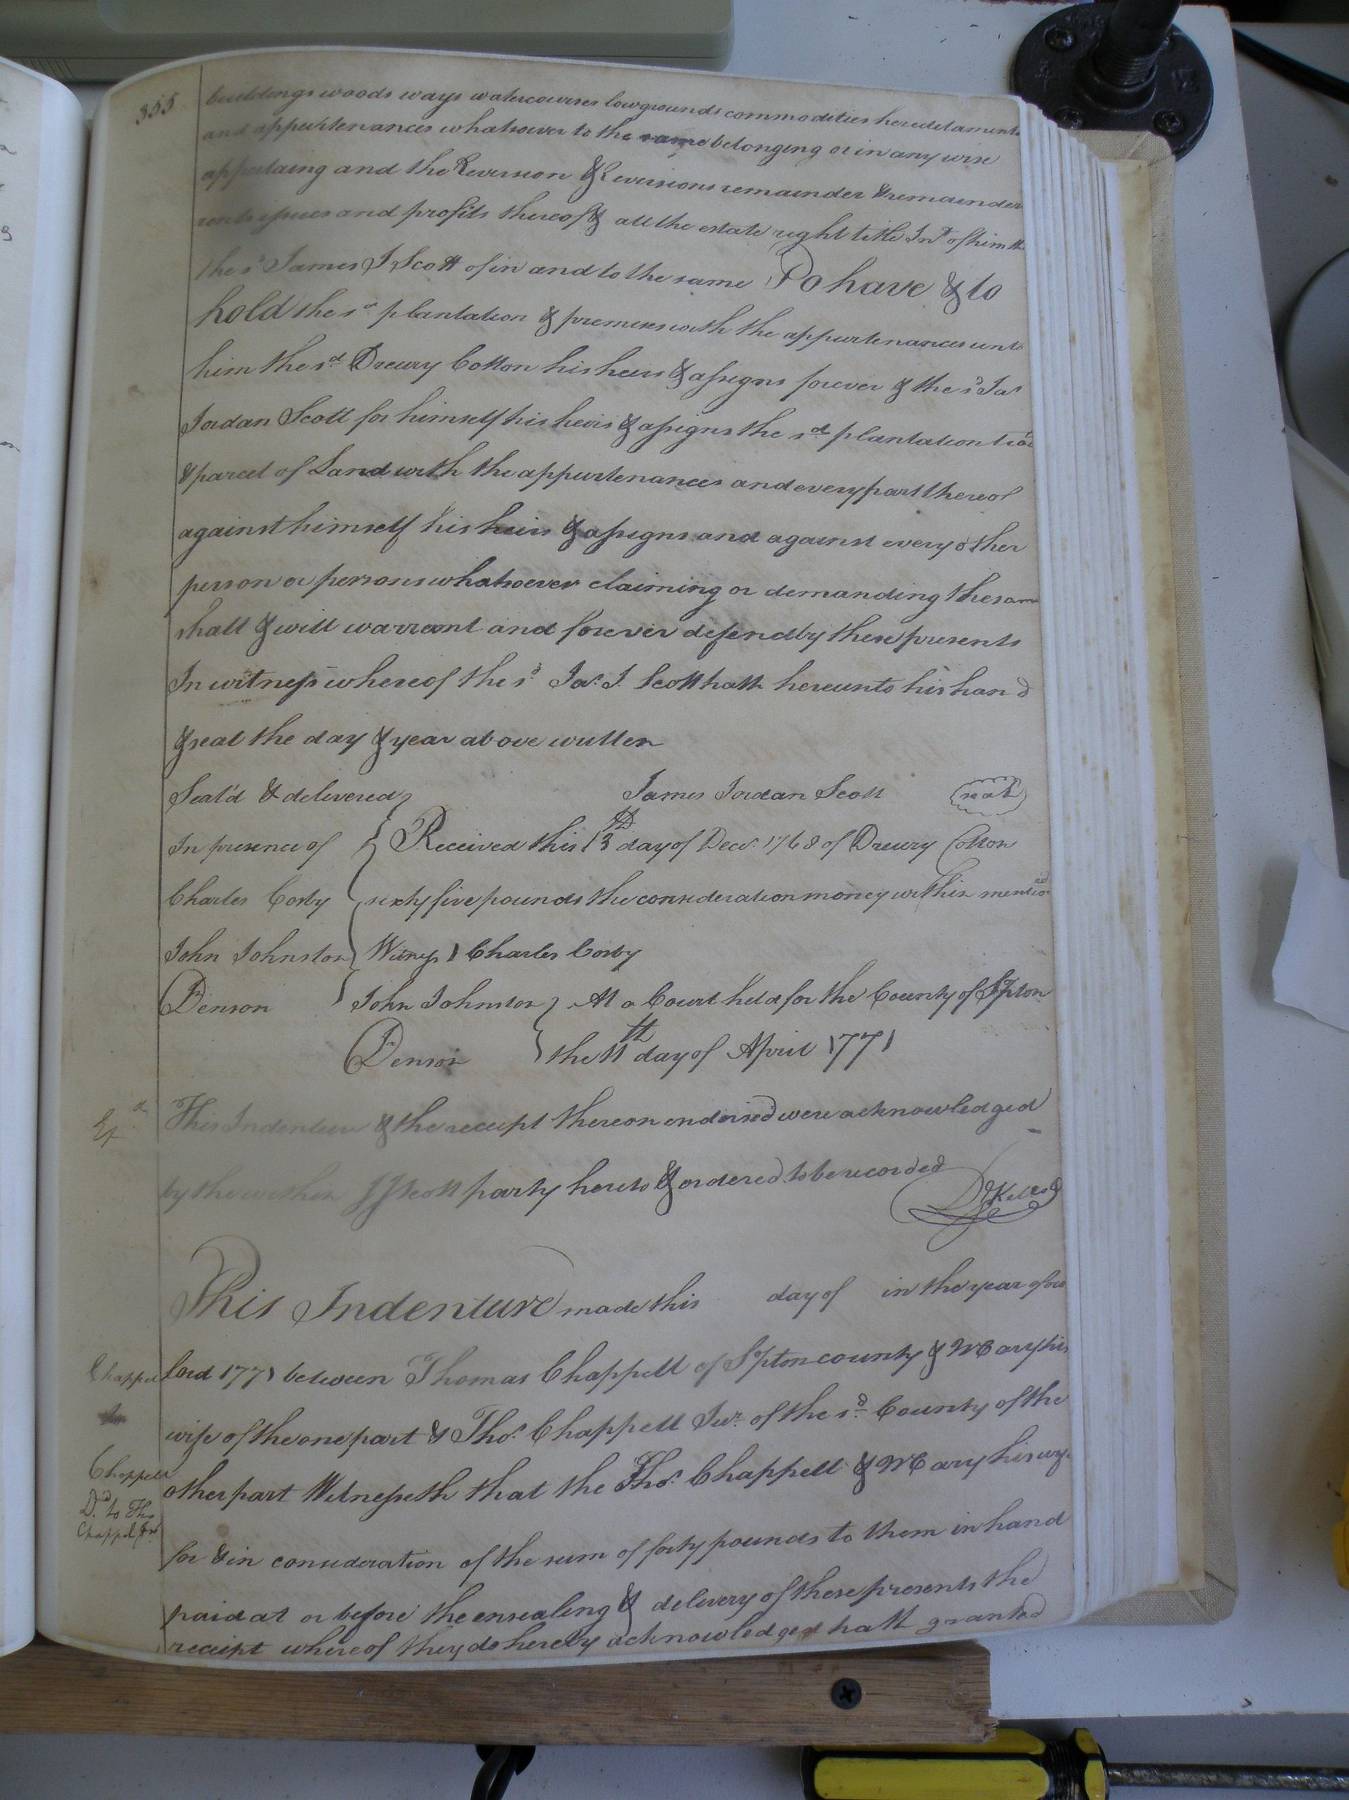 355
buildings woods ways watercourses lowgrounds commodities hereditaments
and appurtenances whatsoever to the same belonging or in any wise
appertaing and the Reversion & Reversions remainder & remainders
rents issues and profits thereof & all the estate right title Int of him the
the sd James J Scott of in and to the same To have & to
hold the sd plantation & premises with the appurtenances unto
him the sd Drewry Cotton his heirs & assigns forever & the sd Jas
Jordan Scott for himself his heirs & assigns the sd plantation tract
& parcel of Land with the appurtenances and every part thereof
against himself his heirs & assigns and against every other
person or persons whatsoever claiming or demanding the same
shall & will warrant and forever defend by these presents
In witness whereof the sd Jas. J. Scott hath hereunto his hand
& seal the day & year above written
Seal'd & delivered James Jordan Scott seal
In presence of Received this 13th day of Decr. 1768 of Drewry Cotton
Charles Cosby sixty five pounds the consideration money within mentioned
John Johnston Witness Charles Cosby
Denson John Johnston At a Court held for the County of Sohton
Denson the 11th day of April 1771
Exd This Indenture & the receipt thereon endorsed were acknowledged
by the within J J Scott party hereto & ordered to be recorded
This Indenture made this day of in the year of our
Chappell lord 1771 between Thomas Chappell of Sohton county & Mary his
to
wife of the one part & Thos. Chappell Jur. of the sd. County of the
Chappell other part Witnesseth that the Thos. Chappell & Mary his wife
Dd. to Tho
Chappel Jr
for & in consideration of the sum of forty pounds to them in hand
paid at or before the ensealing & delivery of these presents the
receipt whereof they do hereby acknowledged hath granted